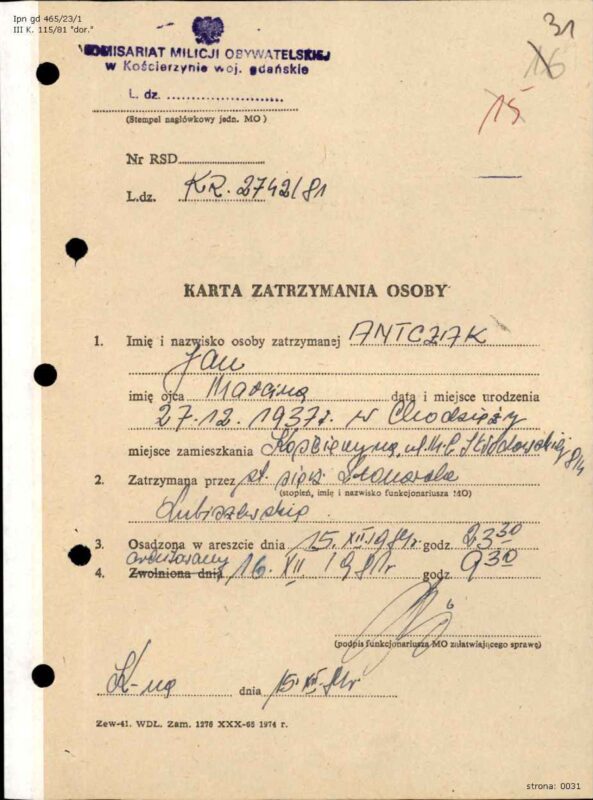 Ipn gd 465/23/1
III K. 115/81 "dor."
31
16
15
KOMISARIAT MILICJI OBYWATELSKIEJ
w Kościerzynie woj. gdańskie
L. dz. ..........................
(Stempel nagłówkowy jedn. MO)
Nr RSD
L.dz. KR. 2742/81
KARTA ZATRZYMANIA OSOBY
1. Imię i nazwisko osoby zatrzymanej ANTCZAK
Jan
imię ojca Marcina data i miejsce urodzenia
27.12.1937r. w Chodzieży
miejsce zamieszkania ul. M. C. Skłodowskiej 8/4
2. Zatrzymana przez st. sierż.
(stopień, imię i nazwisko funkcjonariusza MO)
3. Osadzona w areszcie dnia 15.XII.1981r godz. 23 30
aresztowany
4. Zwolniona dnia 16. XII 1981r godz. 9 30
(podpis funkcjonariusza MO załatwiającego sprawę)
K-na dnia 15.XII.81r
Zew-41. WDL. Zam. 1276 XXX-65 1974 r.
strona: 0031